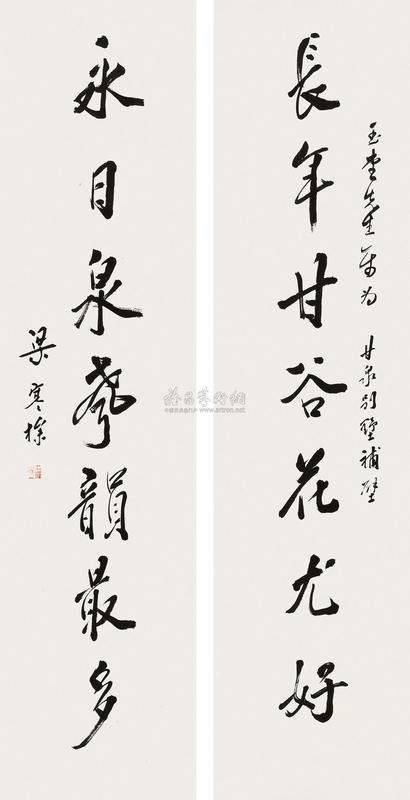 玉堂先生屬為 甘泉別墅補壁
長年甘谷花尤好
永日泉聲韻最多
梁寒操
雅昌藝術網
www.artron.net